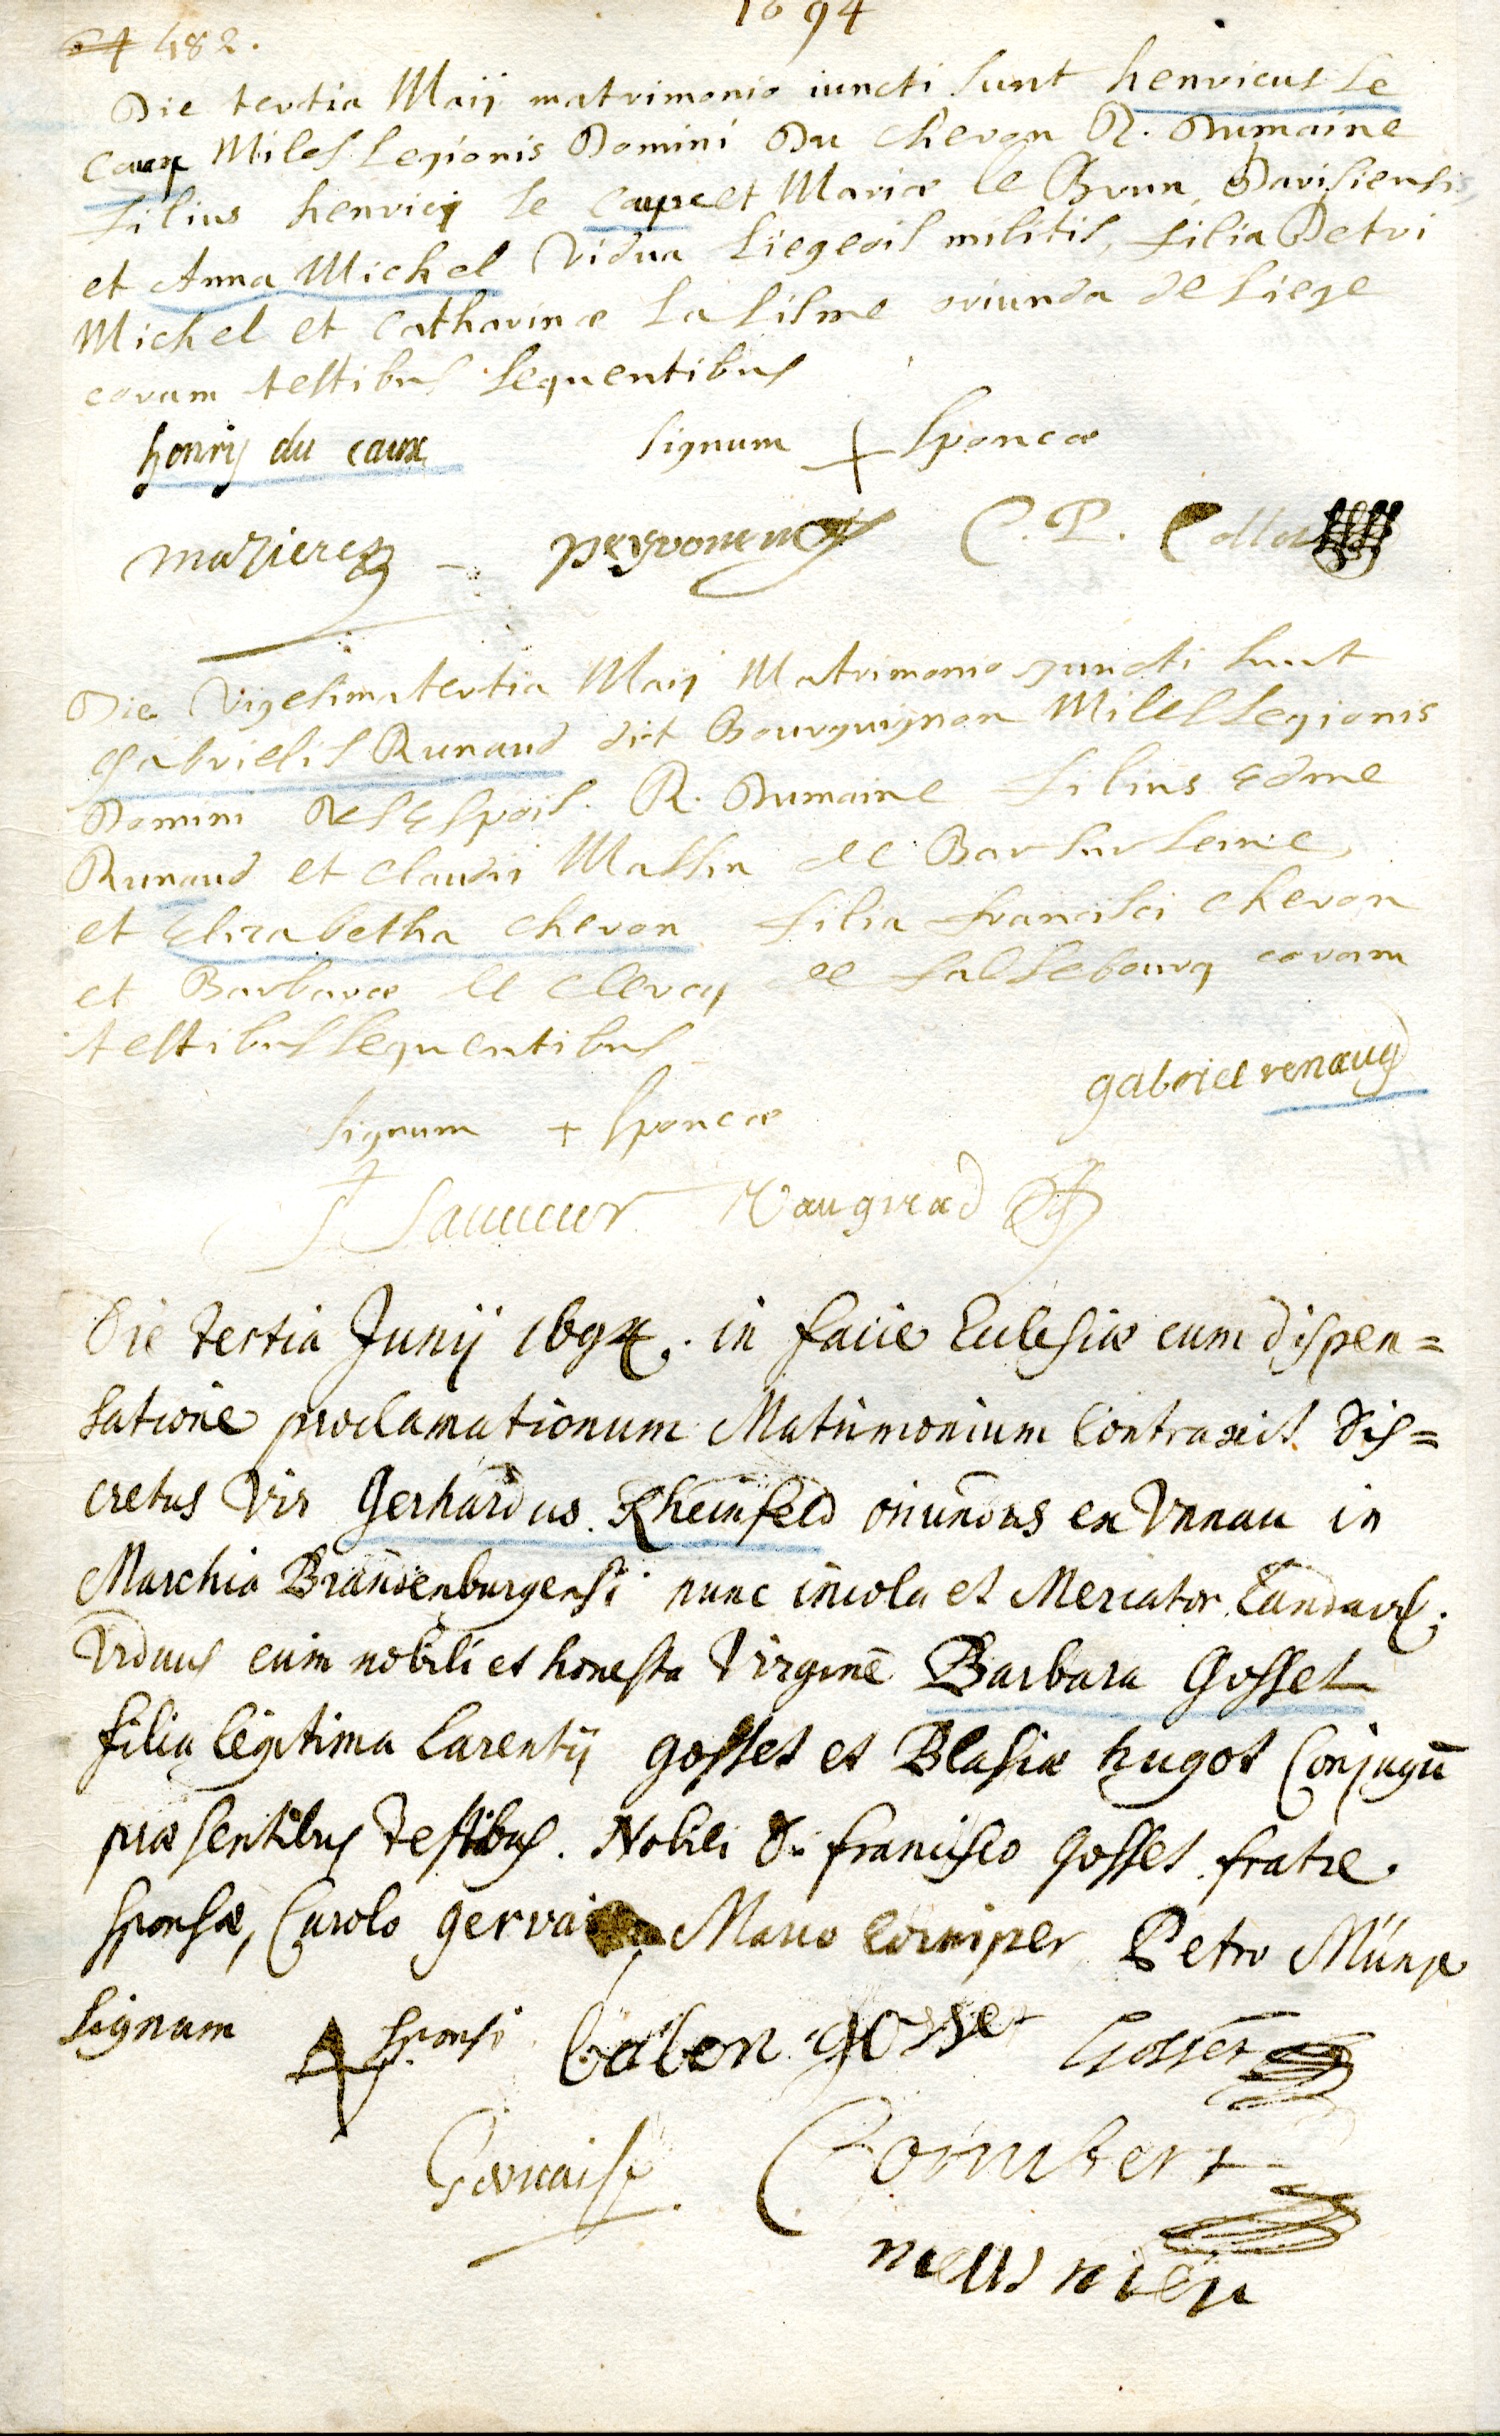 1694
482.
Die tertia Maij matrimonio iuncti sunt henricus Le
Caux Miles Legionis Domini Du Cheron R. Dumaine
filius henrici Le Caux et Mariæ le Brun, Parisiensis,
et Anna Michel Vidua Liegeois militis, filia Petri
Michel et Catharinæ La oriunda de Liege
coram testibus sequentibus
henrij du caux signum + sponcæ
mazieres C. P. Collot
Die Vigesima tertia Maij Matrimonio juncti sunt
Gabrielis Runaud dit Bourguignon Miles Legionis
Domini R. Dumaine filius Edme
Runaud et Claudii Massin de Bar sur Seine
et Elizabetha Cheron filia francisci Cheron
et Barbaræ le Clercq de falsebourg coram
testibus sequentibus
gabriel renaud
signum + sponcæ
Sauueur Vaugirad
Die tertia Junij 1694. in facie Eclesiæ cum dispen=
satione proclamationum Matrimonium Contraxit Dis=
cretus Vir Gerhardus Rheinfeld oriundus ex Vnnau in
Marchia Brandenburgensi nunc incola et Mercator Landavs.
Viduus cum nobili et honesta Virginē Barbara Gosset
filia legitima Larentij gosset et Blasiæ hugot Conjugū
præsentibus testibus. Nobili D. francisco Gosset fratre
sponsæ, Carolo gervais Marco Petro
signum + sponsi baben gosset Gosset
Geruaise